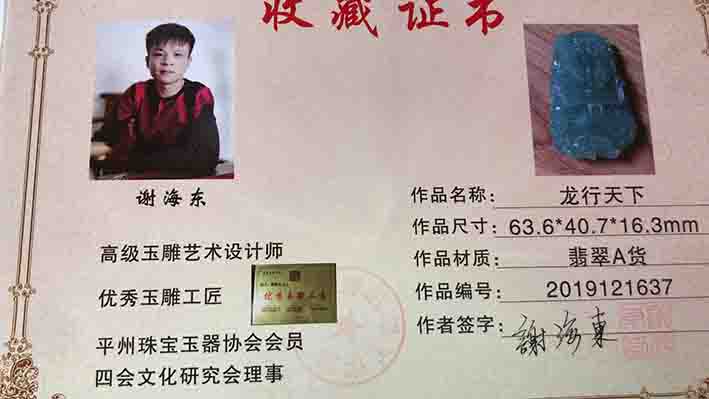 收藏证书
谢海东
高级玉雕艺术设计师
优秀玉雕工匠
平州珠宝玉器协会会员
四会文化研究会理事
作品名称：龙行天下
作品尺寸：63.6*40.7*16.3mm
作品材质：翡翠A货
作品编号：2019121637
作者签字：謝海東